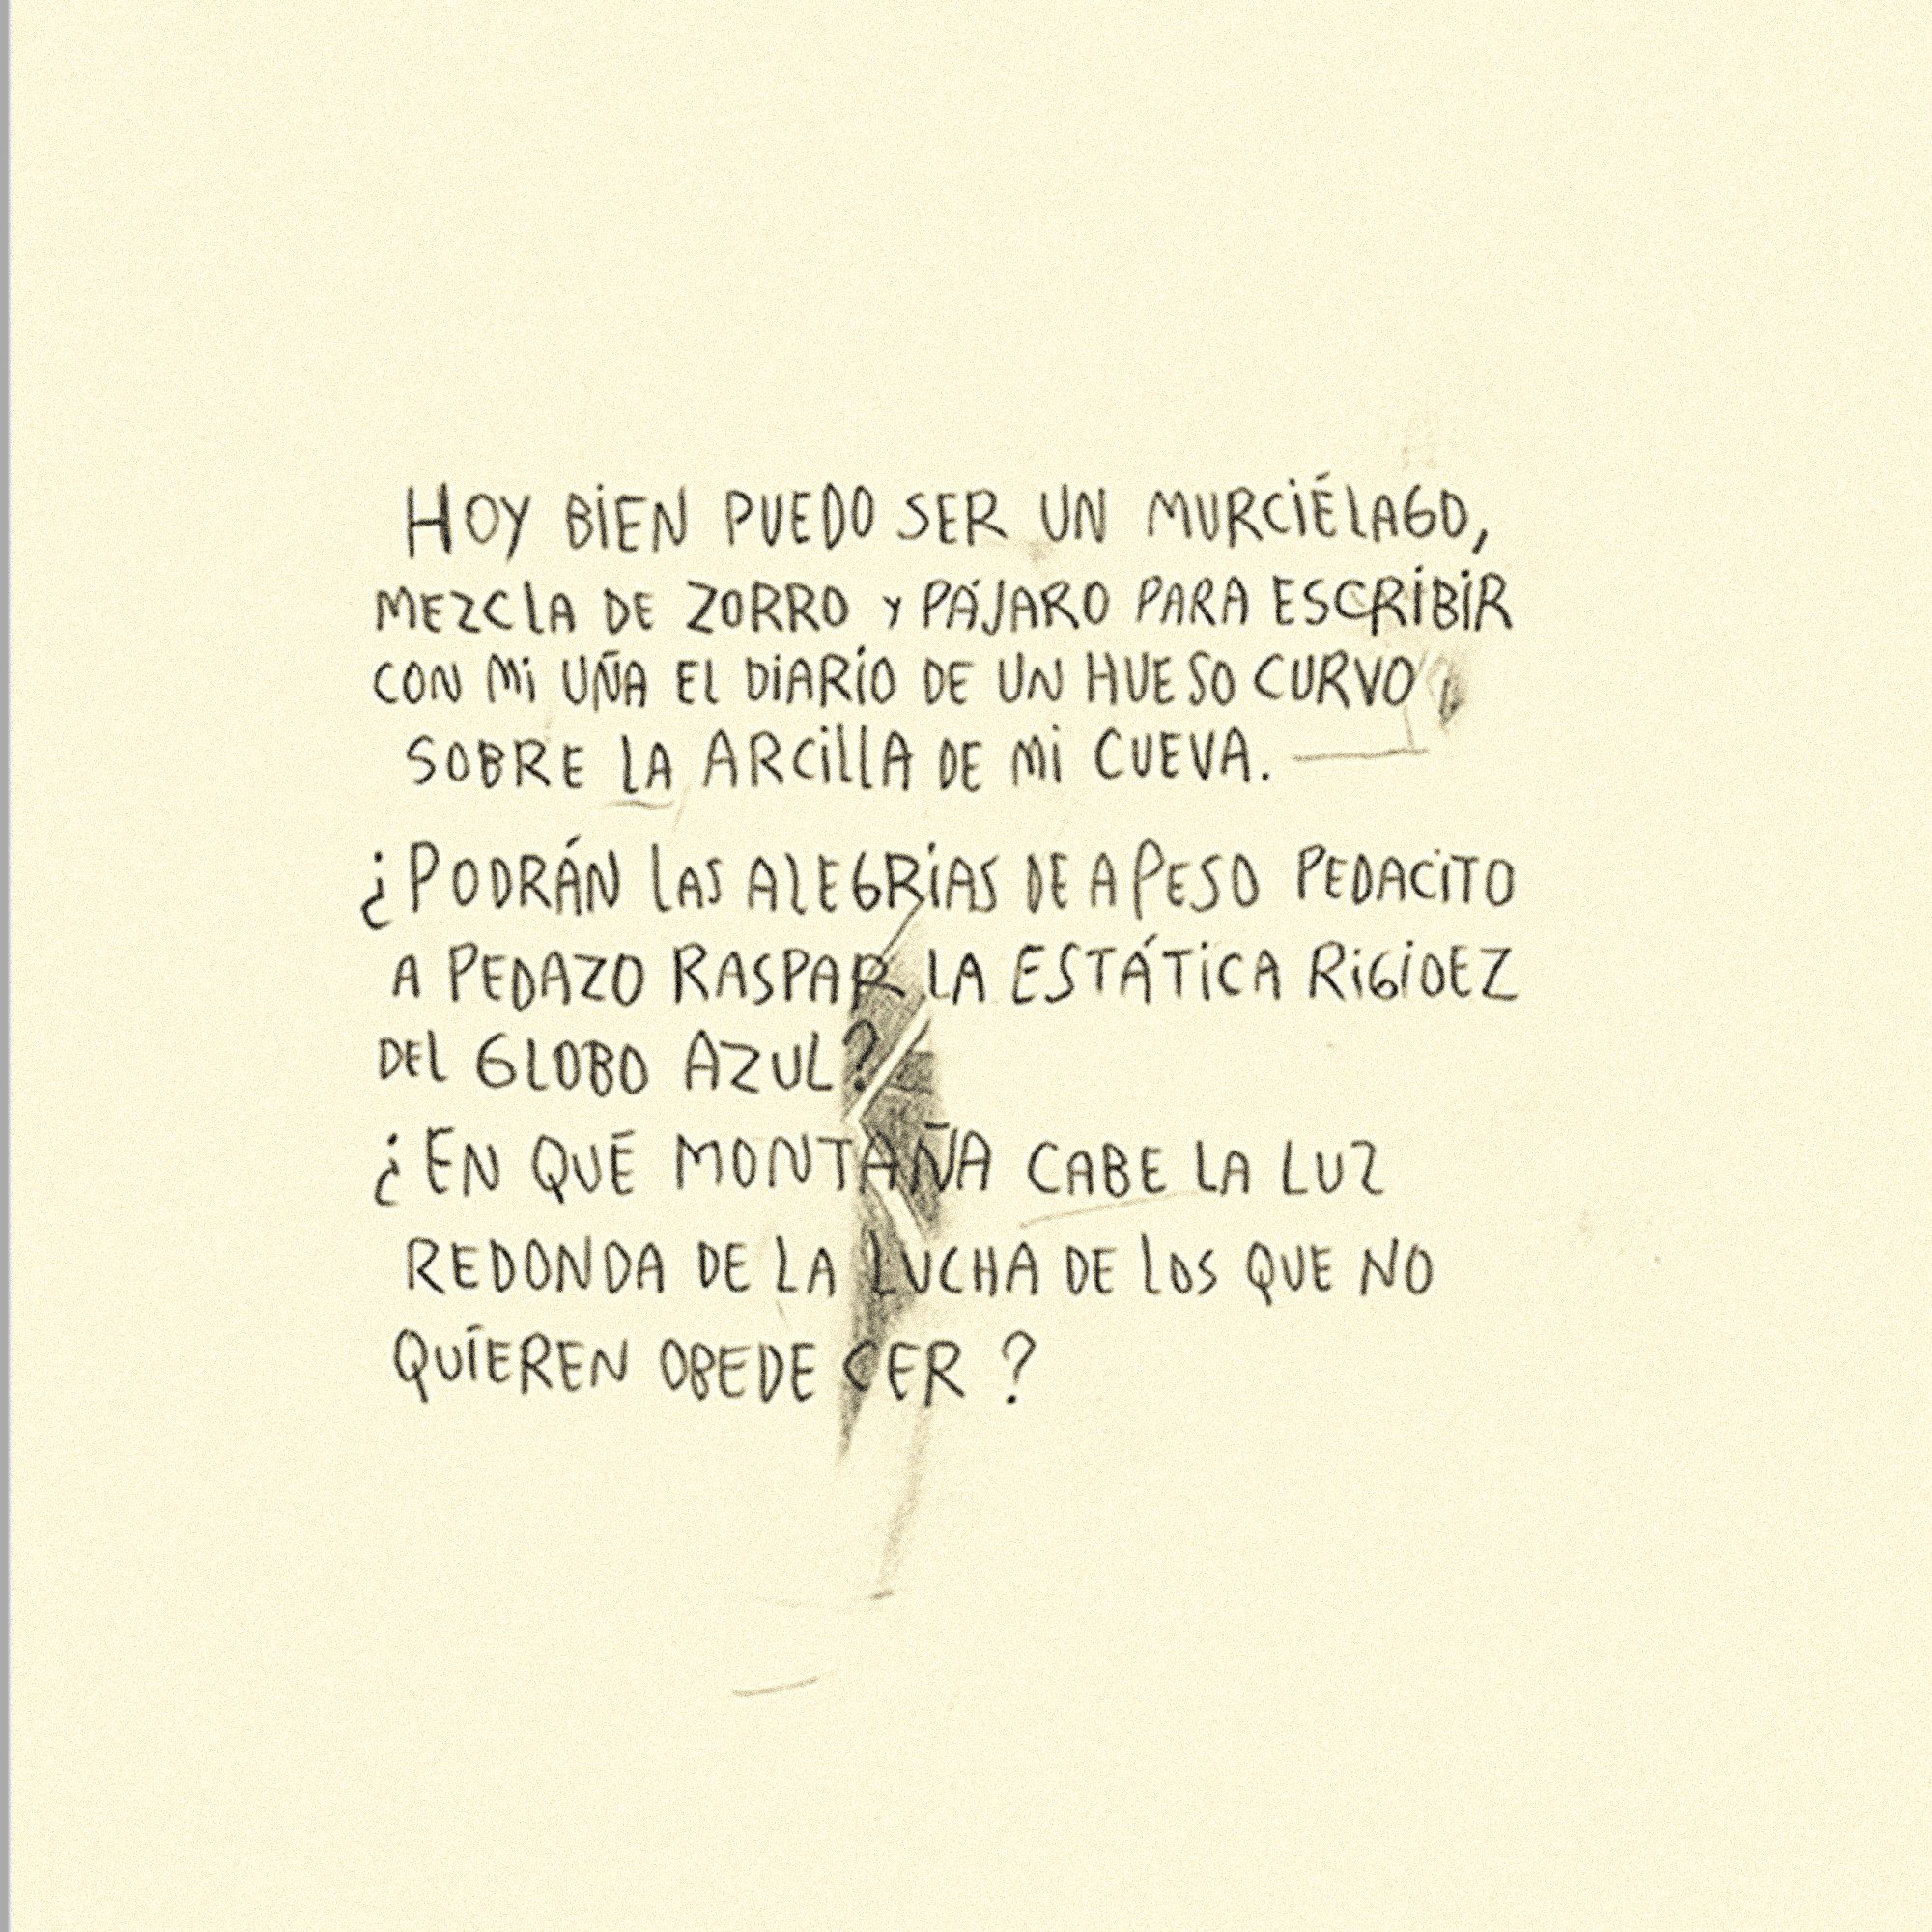 HOY BIEN PUEDO SER UN MURCIÉLAGO,
MEZCLA DE ZORRO Y PÁJARO PARA ESCRIBIR
CON MI UÑA EL DIARIO DE UN HUESO CURVO
SOBRE LA ARCILLA DE MI CUEVA.
¿PODRÁN LAS ALEGRIAS DE A PESO PEDACITO
A PEDAZO RASPAR LA ESTÁTICA RIGIDEZ
DEL GLOBO AZUL?
¿EN QUÉ MONTAÑA CABE LA LUZ
REDONDA DE LA LUCHA DE LOS QUE NO
QUIEREN OBEDECER?